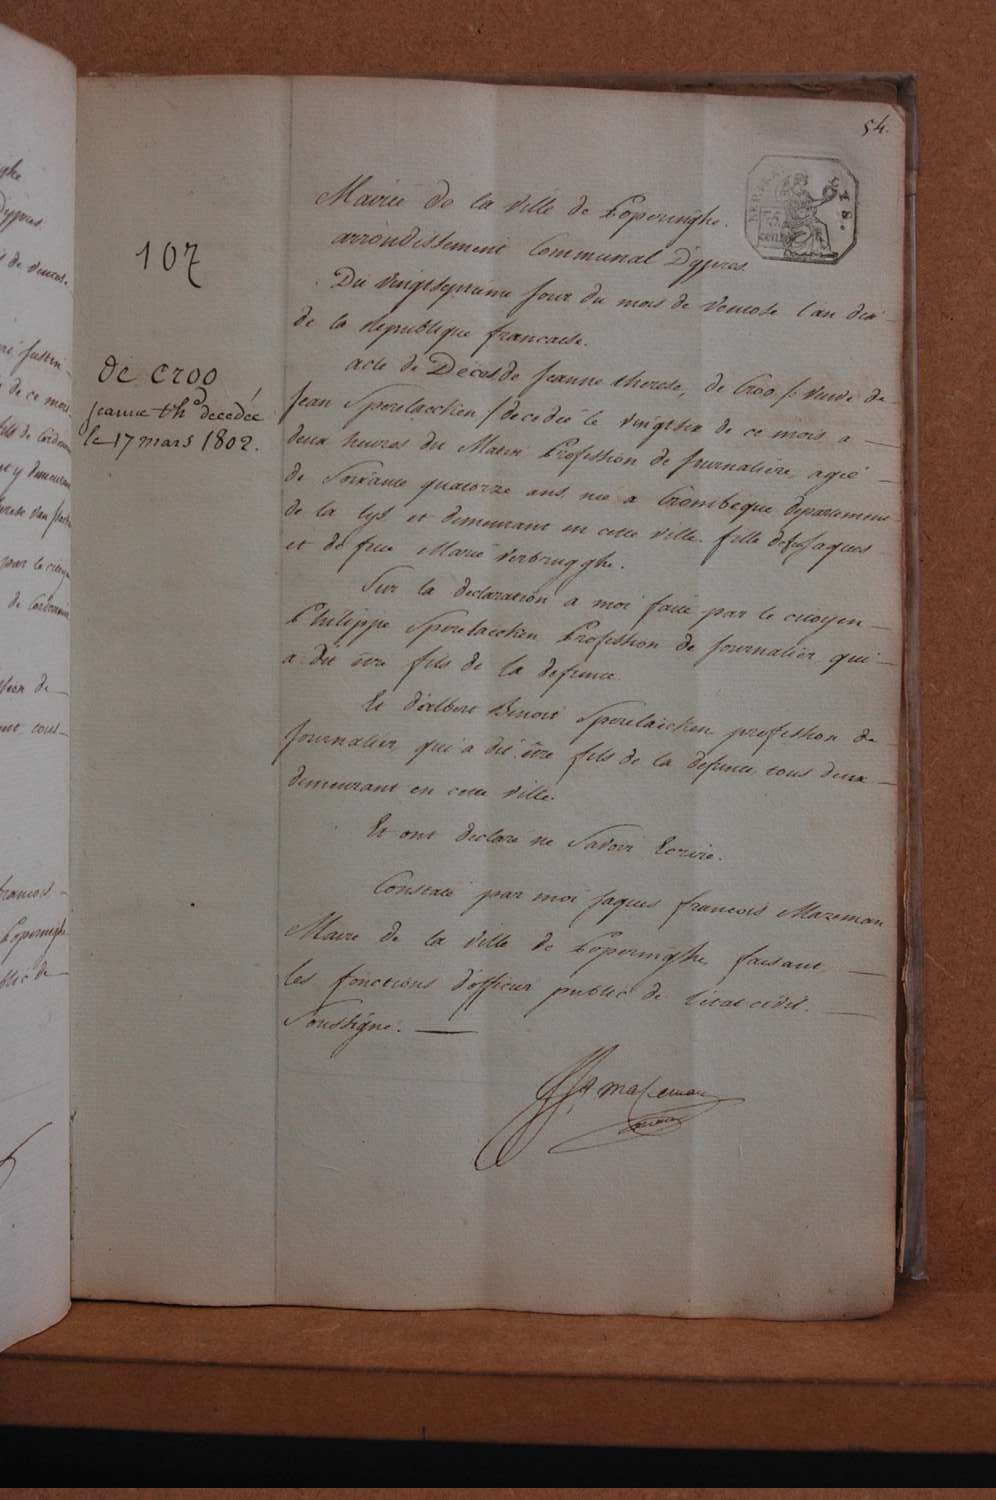 54.
107
de croo
jeanne thᵃ decedée
le 17 mars 1802.
Mairie de la ville de Poperinghe.
arrondissement Communal D'ypres.
Du vingtseptieme jour du mois de ventose l'an dix
de la republique francaise.
acte de Décès de Jeanne therese, de Croo /: veuve de
Jean Sporelaecken :/ decedée le vingtsix de ce mois a
deux heures du Matin Profession de journaliere, agée
de Soixante quatorze ans, née a Crombeque departement
de la lys, et demeurant en cette ville. fille de feu Jaques
et de feue Marie verbrugghe.
Sur la declaration a moi faite par le citoyen
Philippe Sporelaecken Profession de journalier, qui
a dit être fils de la defunte
Et d'albert Benoit Sporelaecken profession de
journalier, qui a dit être fils de la defunte, tous deux
demeurant en cette ville.
Et ont declaré ne savoir Ecrire.
Constaté par moi jaques francois Mazeman
Maire de la ville de Poperinghe, faisant
les fonctions d'officier public de l'état civil.
Soussigné.
mazeman
centim